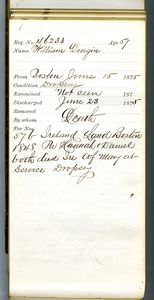 Reg. No. 46233 Age 57
Name William Deegin
From Boston June 15 1875
Condition Dropsy
Examined Not seen 187
Discharged June 23 1875
Removed
By whom Death
For No.
57 b Ireland Land Boston
1848 Pa Hannah & Daniel
both died Mary at
Service Dropsy